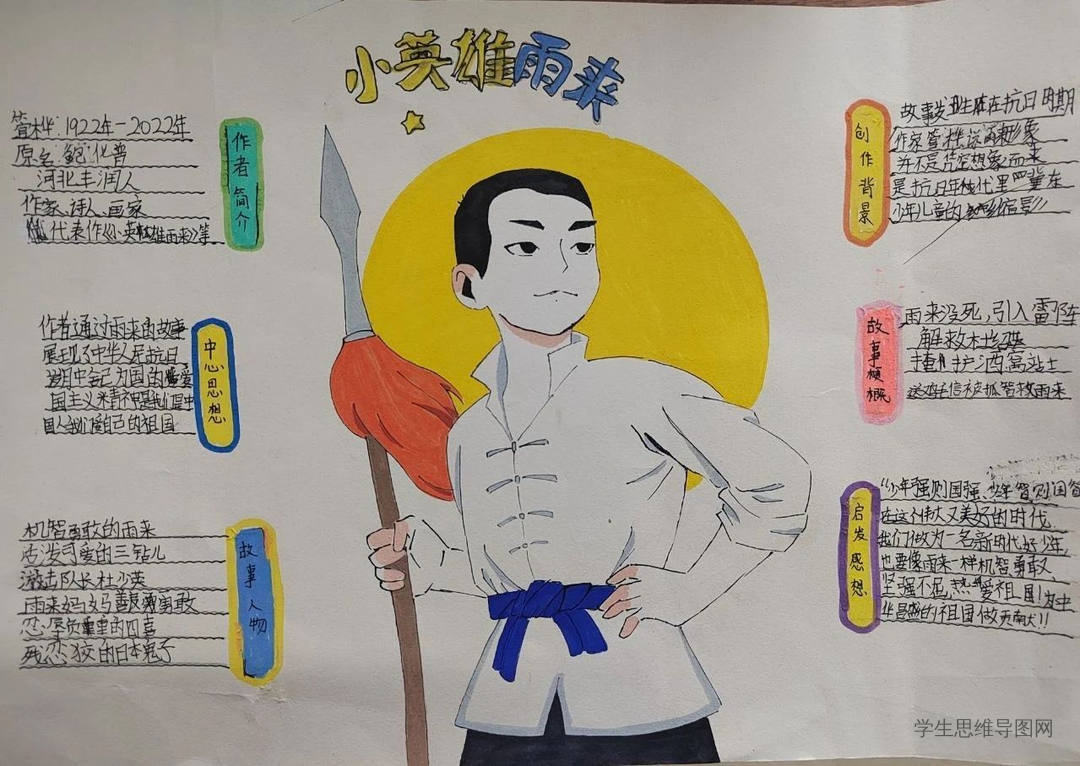 小英雄雨来
作者简介
管桦：1922年-2022年
原名：鲍化普
河北丰润人
作家、诗人、画家
代表作《小英雄雨来》等
中心思想
作者通过雨来的故事
展现了中华人民抗日
国主义精神
国人我们爱自己的祖国
故事人物
机智勇敢的雨来
活泼可爱的三钻儿
游击队长杜少英
雨来妈妈善良勇敢
忍辱负重的四喜
残忍狡的日本鬼子
创作背景
故事发生在抗日时期
作家管桦说雨来形象
并不是凭空想象而来
是抗日年代里一辈在
少年儿童的缩影
故事梗概
雨来没死，引入雷阵
解救村
掩护酒高站士
送鸡毛信被抓智救雨来
启发感想
“少年强则国强、少年智则国智
在这个伟大又美好的时代
我们做为一名新时代好少年，
也要像雨来一样机智勇敢、
坚强不屈，热爱祖国！为中
华昌盛的祖国做贡献！！
学生思维导图网